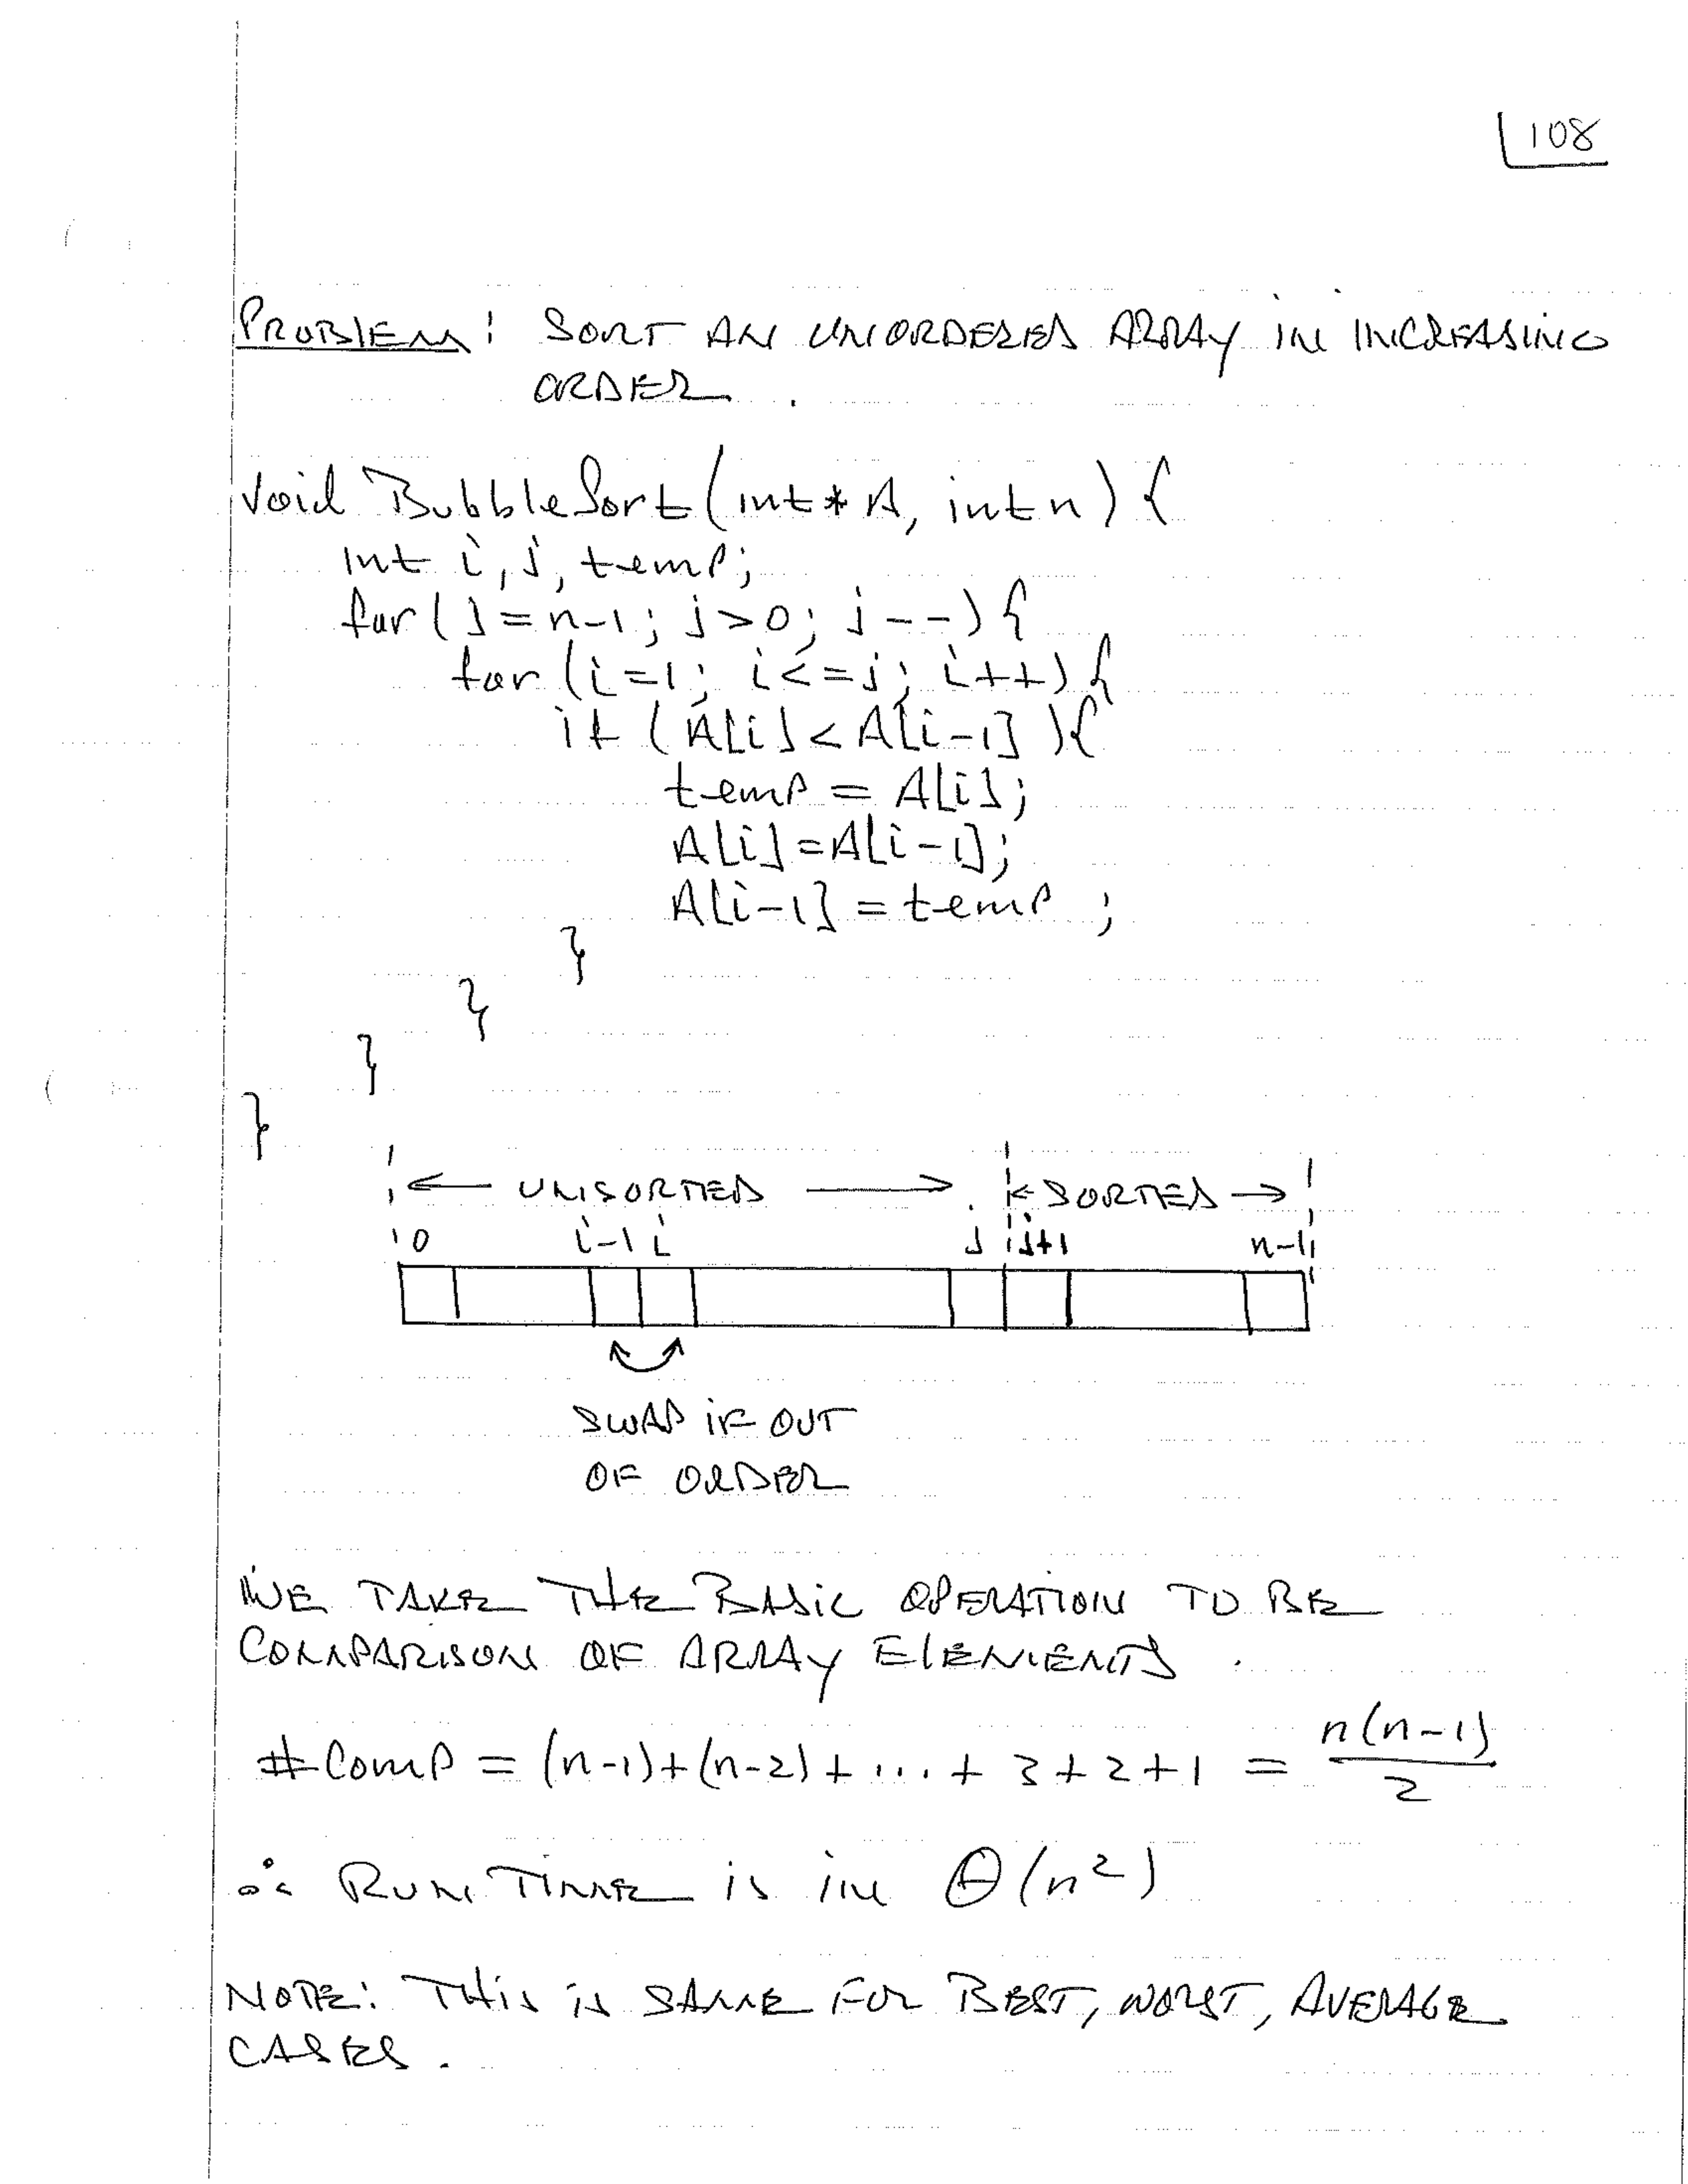 108
PROBLEM: SORT AN UNORDERED ARRAY IN INCREASING
ORDER.
void BubbleSort(int* A, int n){
int i, j, temp;
for(j=n-1; j>0; j--){
for(i=1; i<=j; i++){
if (A[i]<A[i-1]){
temp = A[i];
A[i]=A[i-1];
A[i-1]=temp ;
}
}
}
}
← UNSORTED → ← SORTED →
0 i-1 i j j+1 n-1
SWAP IF OUT
OF ORDER
WE TAKE THE BASIC OPERATION TO BE
COMPARISON OF ARRAY ELEMENTS.
#COMP = (n-1)+(n-2)+...+3+2+1 = n(n-1)/2
∴ RUN TIME is in Θ(n²)
NOTE: THIS IS SAME FOR BEST, WORST, AVERAGE
CASES.